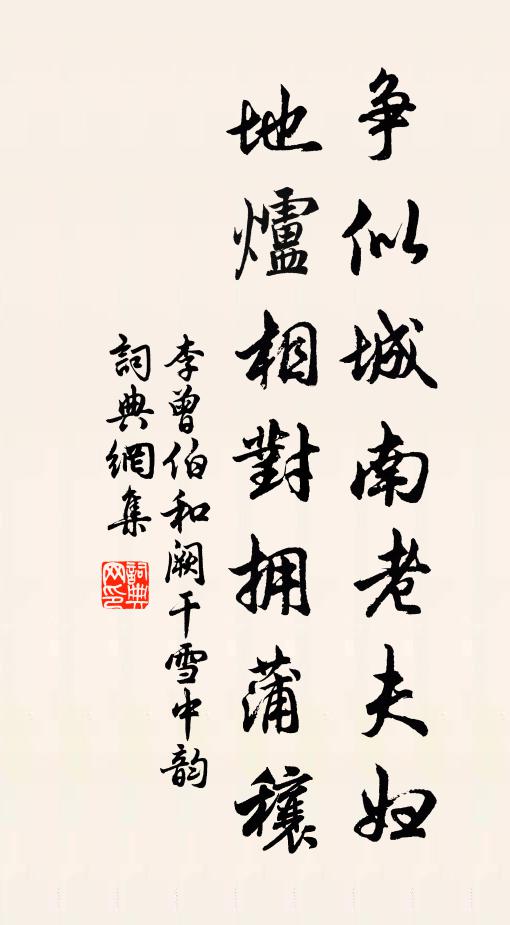 争似城南老夫妇
地爐相對拥蒲穰
李曾伯和阙干雪中韵
詞典網集
詞典
网印